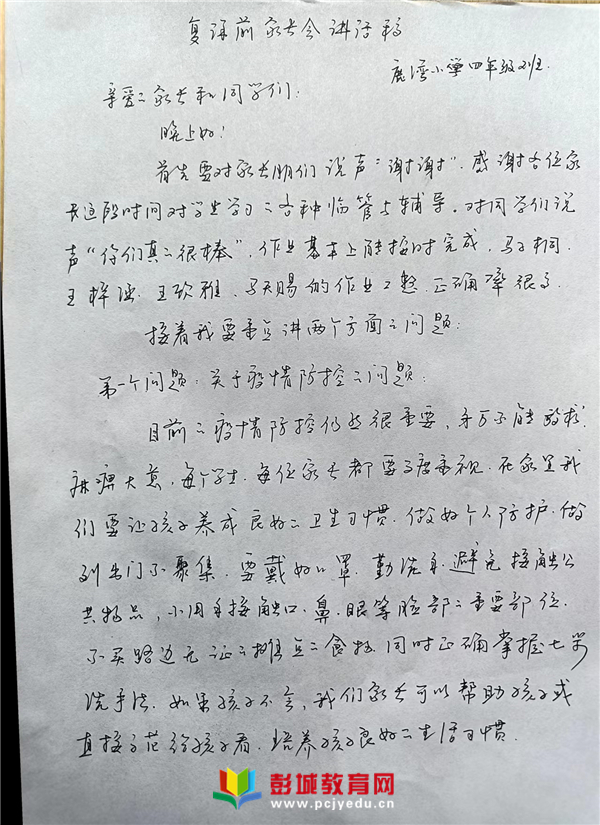 复课前家长会讲话稿
鹿湾小学四年级2班
亲爱的家长和同学们:
晚上好!
首先要对家长朋们说声“谢谢”。感谢各位家
长这段时间对学生学习的各种监管与辅导。对同学们说
声“你们真的很棒”,作业基本上能按时完成,马子桐.
王梓 王欣雅、马天赐的作业工整.正确率很高
接着我要重点讲两个方面的问题:
第一个问题:关于疫情防控的问题:
目前的疫情防控仍然很重要,千万不能放松.
麻痹大意,每个学生.每位家长都要高度重视.在家里我
们要让孩子养成良好的卫生习惯.做好个人防护.做
到出门不聚集.要戴好口罩.勤洗手.避免接触公
共物品,不用手接触口.鼻.眼等脸部的重要部位.
不买路边无证的摊点的食物.同时正确掌握七步
洗手法.如果孩子不会,我们家长可以帮助孩子或
直接示范给孩子看.培养孩子良好的生活习惯.
彭城教育网
www.pcjyedu.cn